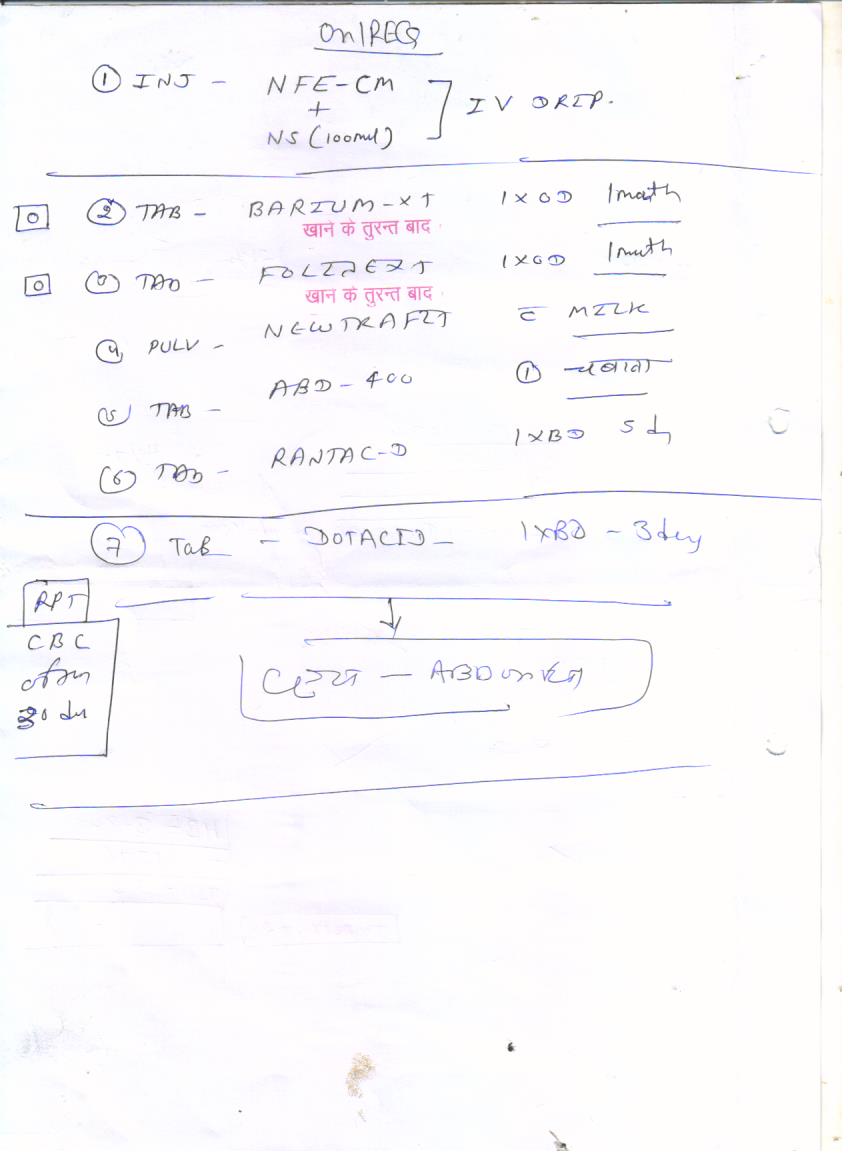 On/REQ
① INJ - NFE-CM
+
NS (100ml)
] IV DRIP.
② TAB - BARIUM-XT 1 X OD 1 month
खाने के तुरन्त बाद
③ TAB - FOLINEXT 1 X OD 1 month
खाने के तुरन्त बाद
④ PULV - NEWTRAFIT c̄ MILK
⑤ TAB - ABD - 400 ① चबाना
⑥ TAB - RANTAC-D 1 X BD 5 d
⑦ TAB - DOTACID - 1 X BD - 3 day
RPT
CBC
30
ABD